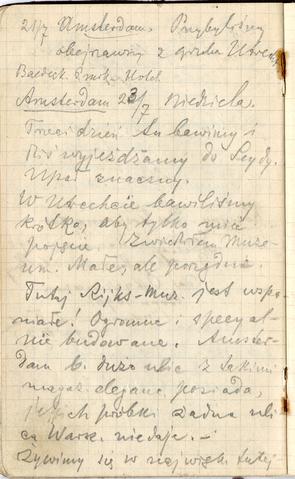 21/7 Amsterdam. Przybyliśmy
obejrzawszy z gruba Utrecht
Baedeck. Hotel
Amsterdam 23/7 Niedziela.
Trzeci dzień tu bawimy i
dziś wyjeżdżamy do Leydy.
Upał znaczny.
W Utrechcie bawiliśmy
krótko, aby tylko mieć
pojęcie. Zwiedziłem Muze-
um. Małe, ale porządne.
Tutaj Rijks-Muz. jest wspa-
niałe! Ogromne i specyal-
nie budowane. Amster-
dam b. dużo ulic z takimi
magaz. eleganc. posiada,
jakich próbki żadna uli
ca Warsz. nie daje. —
Żywimy się w najwięk. tutej-